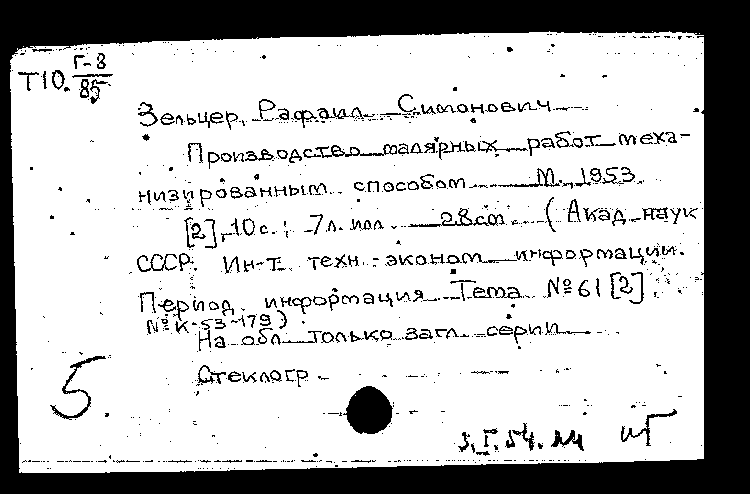 Г-8
Т10. 85
Зельцер, Рафаил Симонович
Производство малярных работ меха-
низированным способом М., 1953
[2], 10 с.; 7 л. илл. 28 см. (Акад. наук
СССР. Ин-т техн.-эконом. информации.
Период. информация Тема № 61 [2]
№ К-53-179)
На обл. только загл. серии
Стеклогр.
5.
3.I.54.